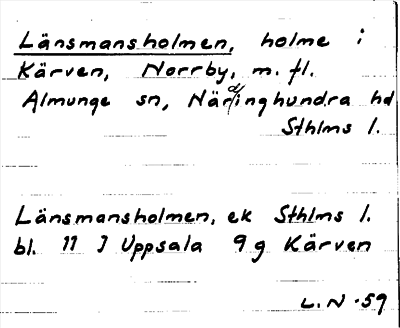 Länsmansholmen, holme i
Kärven, Norrby, m. fl.
Almunge sn, Närdinghundra hd
Sthlms l.
Länsmansholmen, ek Sthlms l.
bl. 11 J Uppsala 9 g Kärven
L.N -59